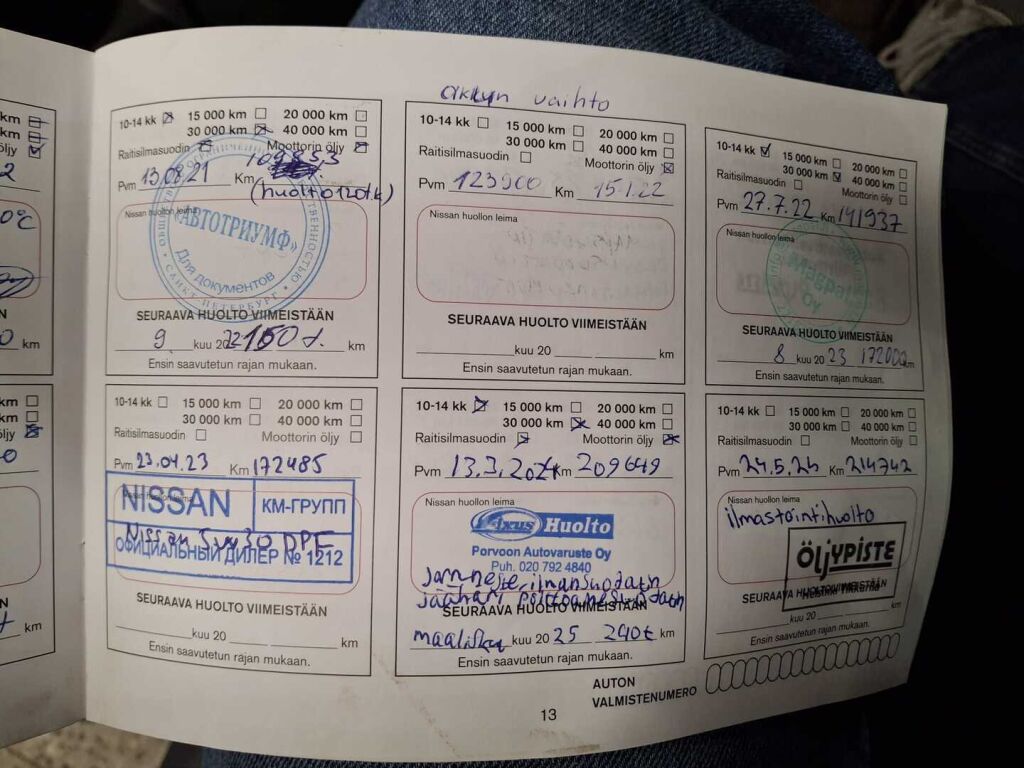 akkyn vaihto
10-14 kk 15 000 km 20 000 km
30 000 km 40 000 km
Raitisilmasuodin Moottorin öljy
Pvm 13.08.21 Km 109853
(huolto120t.k)
Nissan huollon leima
«АВТОТРИУМФ»
Для документов
САНКТ-ПЕТЕРБУРГ
SEURAAVA HUOLTO VIIMEISTÄÄN
9 kuu 20 22 150 t. km
Ensin saavutetun rajan mukaan.
10-14 kk 15 000 km 20 000 km
30 000 km 40 000 km
Raitisilmasuodin Moottorin öljy
Pvm 123900 Km 15.1.22
Nissan huollon leima
SEURAAVA HUOLTO VIIMEISTÄÄN
kuu 20 km
Ensin saavutetun rajan mukaan.
10-14 kk 15 000 km 20 000 km
30 000 km 40 000 km
Raitisilmasuodin Moottorin öljy
Pvm 27.7.22 Km 141937
Nissan huollon leima
Oy
SEURAAVA HUOLTO VIIMEISTÄÄN
8 kuu 20 23 172000 km
Ensin saavutetun rajan mukaan.
10-14 kk 15 000 km 20 000 km
30 000 km 40 000 km
Raitisilmasuodin Moottorin öljy
Pvm 23.04.23 Km 172485
Nissan huollon leima
NISSAN КМ-ГРУПП
Nissan 5w30 DPF
ОФИЦИАЛЬНЫЙ ДИЛЕР № 1212
SEURAAVA HUOLTO VIIMEISTÄÄN
kuu 20 km
Ensin saavutetun rajan mukaan.
10-14 kk 15 000 km 20 000 km
30 000 km 40 000 km
Raitisilmasuodin Moottorin öljy
Pvm 13.3.2024 Km 209649
Nissan huollon leima
Fixus Huolto
Porvoon Autovaruste Oy
Puh. 020 792 4840
jarrneste ilmansuodatin
jäähari polttoainesuodatin
SEURAAVA HUOLTO VIIMEISTÄÄN
maalisku kuu 20 25 240t km
Ensin saavutetun rajan mukaan.
10-14 kk 15 000 km 20 000 km
30 000 km 40 000 km
Raitisilmasuodin Moottorin öljy
Pvm 24.5.24 Km 214742
Nissan huollon leima
ilmastointihuolto
ÖLJYPISTE
SEURAAVA HUOLTO VIIMEISTÄÄN
kuu 20 km
Ensin saavutetun rajan mukaan.
AUTON
VALMISTENUMERO
13